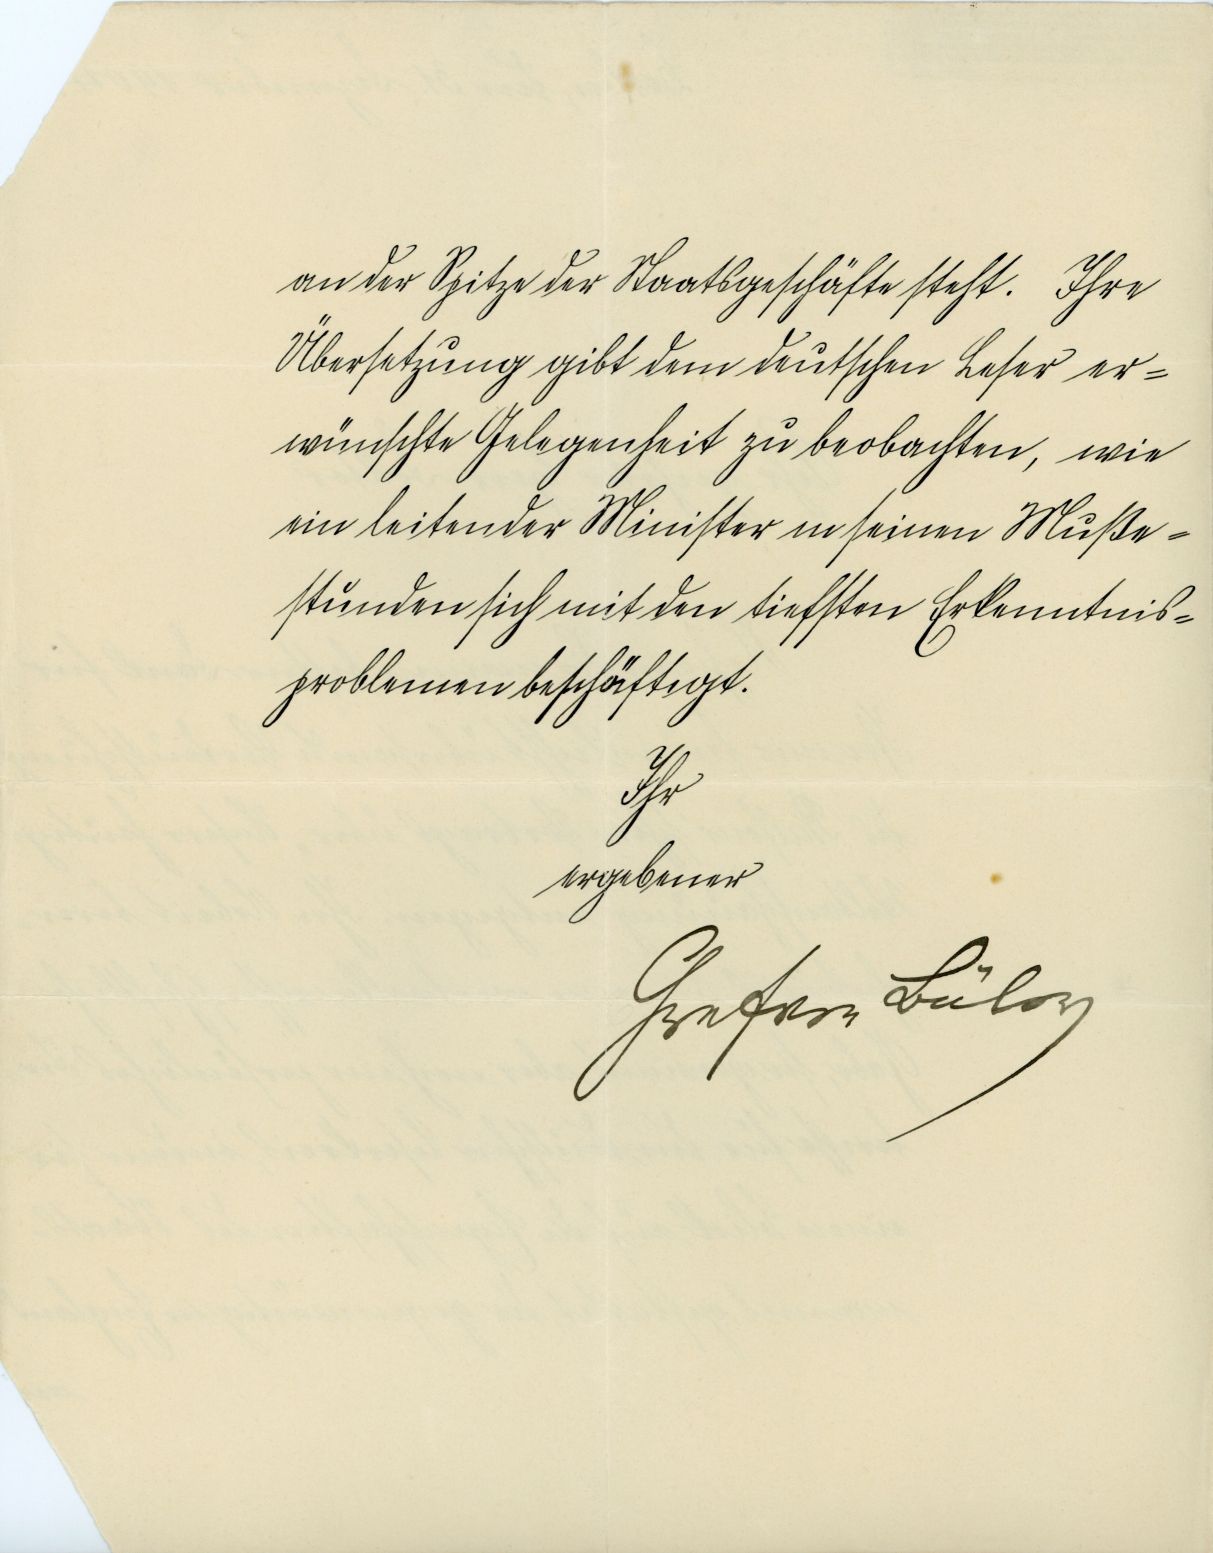 an der Spitze der Staatsgeschäfte steht. Ihre
Übersetzung gibt dem deutschen Leser er=
wünschte Gelegenheit zu beobachten, wie
ein leitender Minister in seinen Muße=
stunden sich mit den tiefsten Erkenntnis=
problemen beschäftigt.
Ihr
ergebener
Graf von Bülow